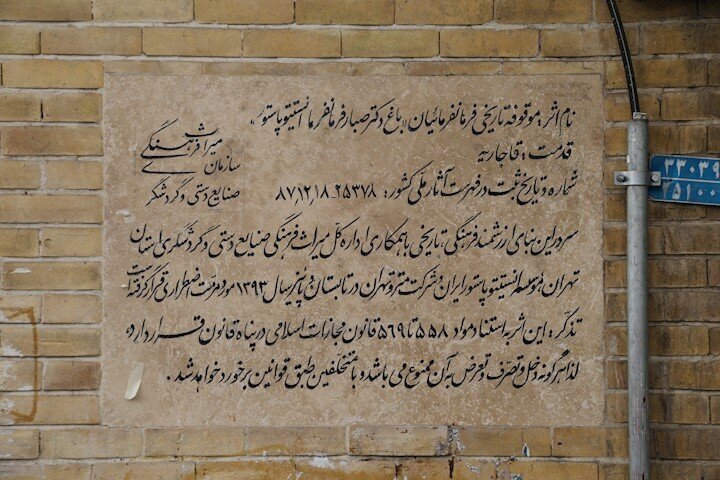 نام اثر: موقوفه تاریخی فرمانفرمائیان (باغ دکتر صبار فرمانفرما انستیتو پاستور)
قدمت: قاجاریه
شماره و تاریخ ثبت در فهرست آثار ملّی کشور: ۲۵۳۷۸-۸۷،۱۲،۱۸
میراث فرهنگی
سازمان
صنایع دستی و گردشگری
سردر این بنای ارزشمند فرهنگی، تاریخی با همکاری اداره کلّ میراث فرهنگی صنایع دستی و گردشگری استان
تهران، مؤسسه انستیتو پاستور ایران و شرکت مترو تهران در تابستان و پائیز سال ۱۳۹۳ مورد مرمت اضطراری قرار گرفته است
تذکر: این اثر به استناد مواد ۵۵۸ تا ۵۶۹ قانون مجازات اسلامی در پناه قانون قرار دارد،
لذا هرگونه دخل و تصرّف و تعرض به آن ممنوع می باشد و با متخلفین طبق قوانین برخورد خواهد شد.
۳۳۰۳۹
۲۵۱۰۰